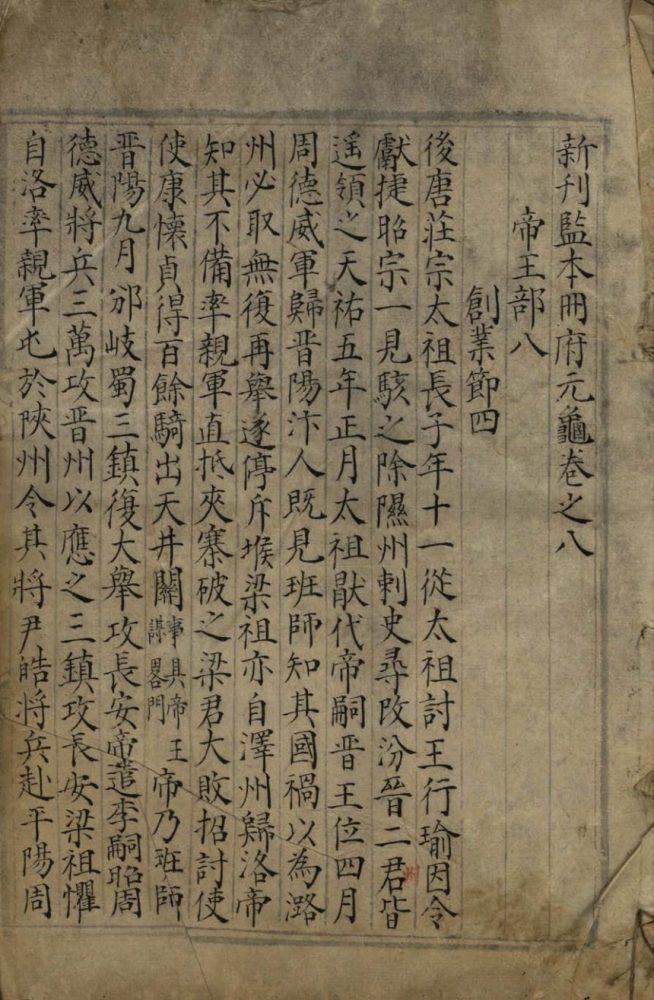 新刊監本冊府元龜卷之八
帝王部八
創業節四
後唐莊宗太祖長子年十一從太祖討王行瑜因令
獻捷昭宗一見駭之除隰州刺史尋改汾晉二君皆
遥領之天祐五年正月太祖猒代帝嗣晋王位四月
周德威軍歸晋陽汴人既見班師知其國禍以為潞
州必取無復再舉遂停斥堠梁祖亦自澤州歸洛帝
知其不備率親軍直抵夾寨破之梁君大敗招討使
使康懷貞得百餘騎出天井關事具帝王謀畧門帝乃班師
晋陽九月邠岐蜀三鎮復大舉攻長安帝遣李嗣昭周
德威將兵三萬攻晋州以應之三鎮攻長安梁祖懼
自洛率親軍屯於陝州令其將尹皓將兵赴平陽周
州